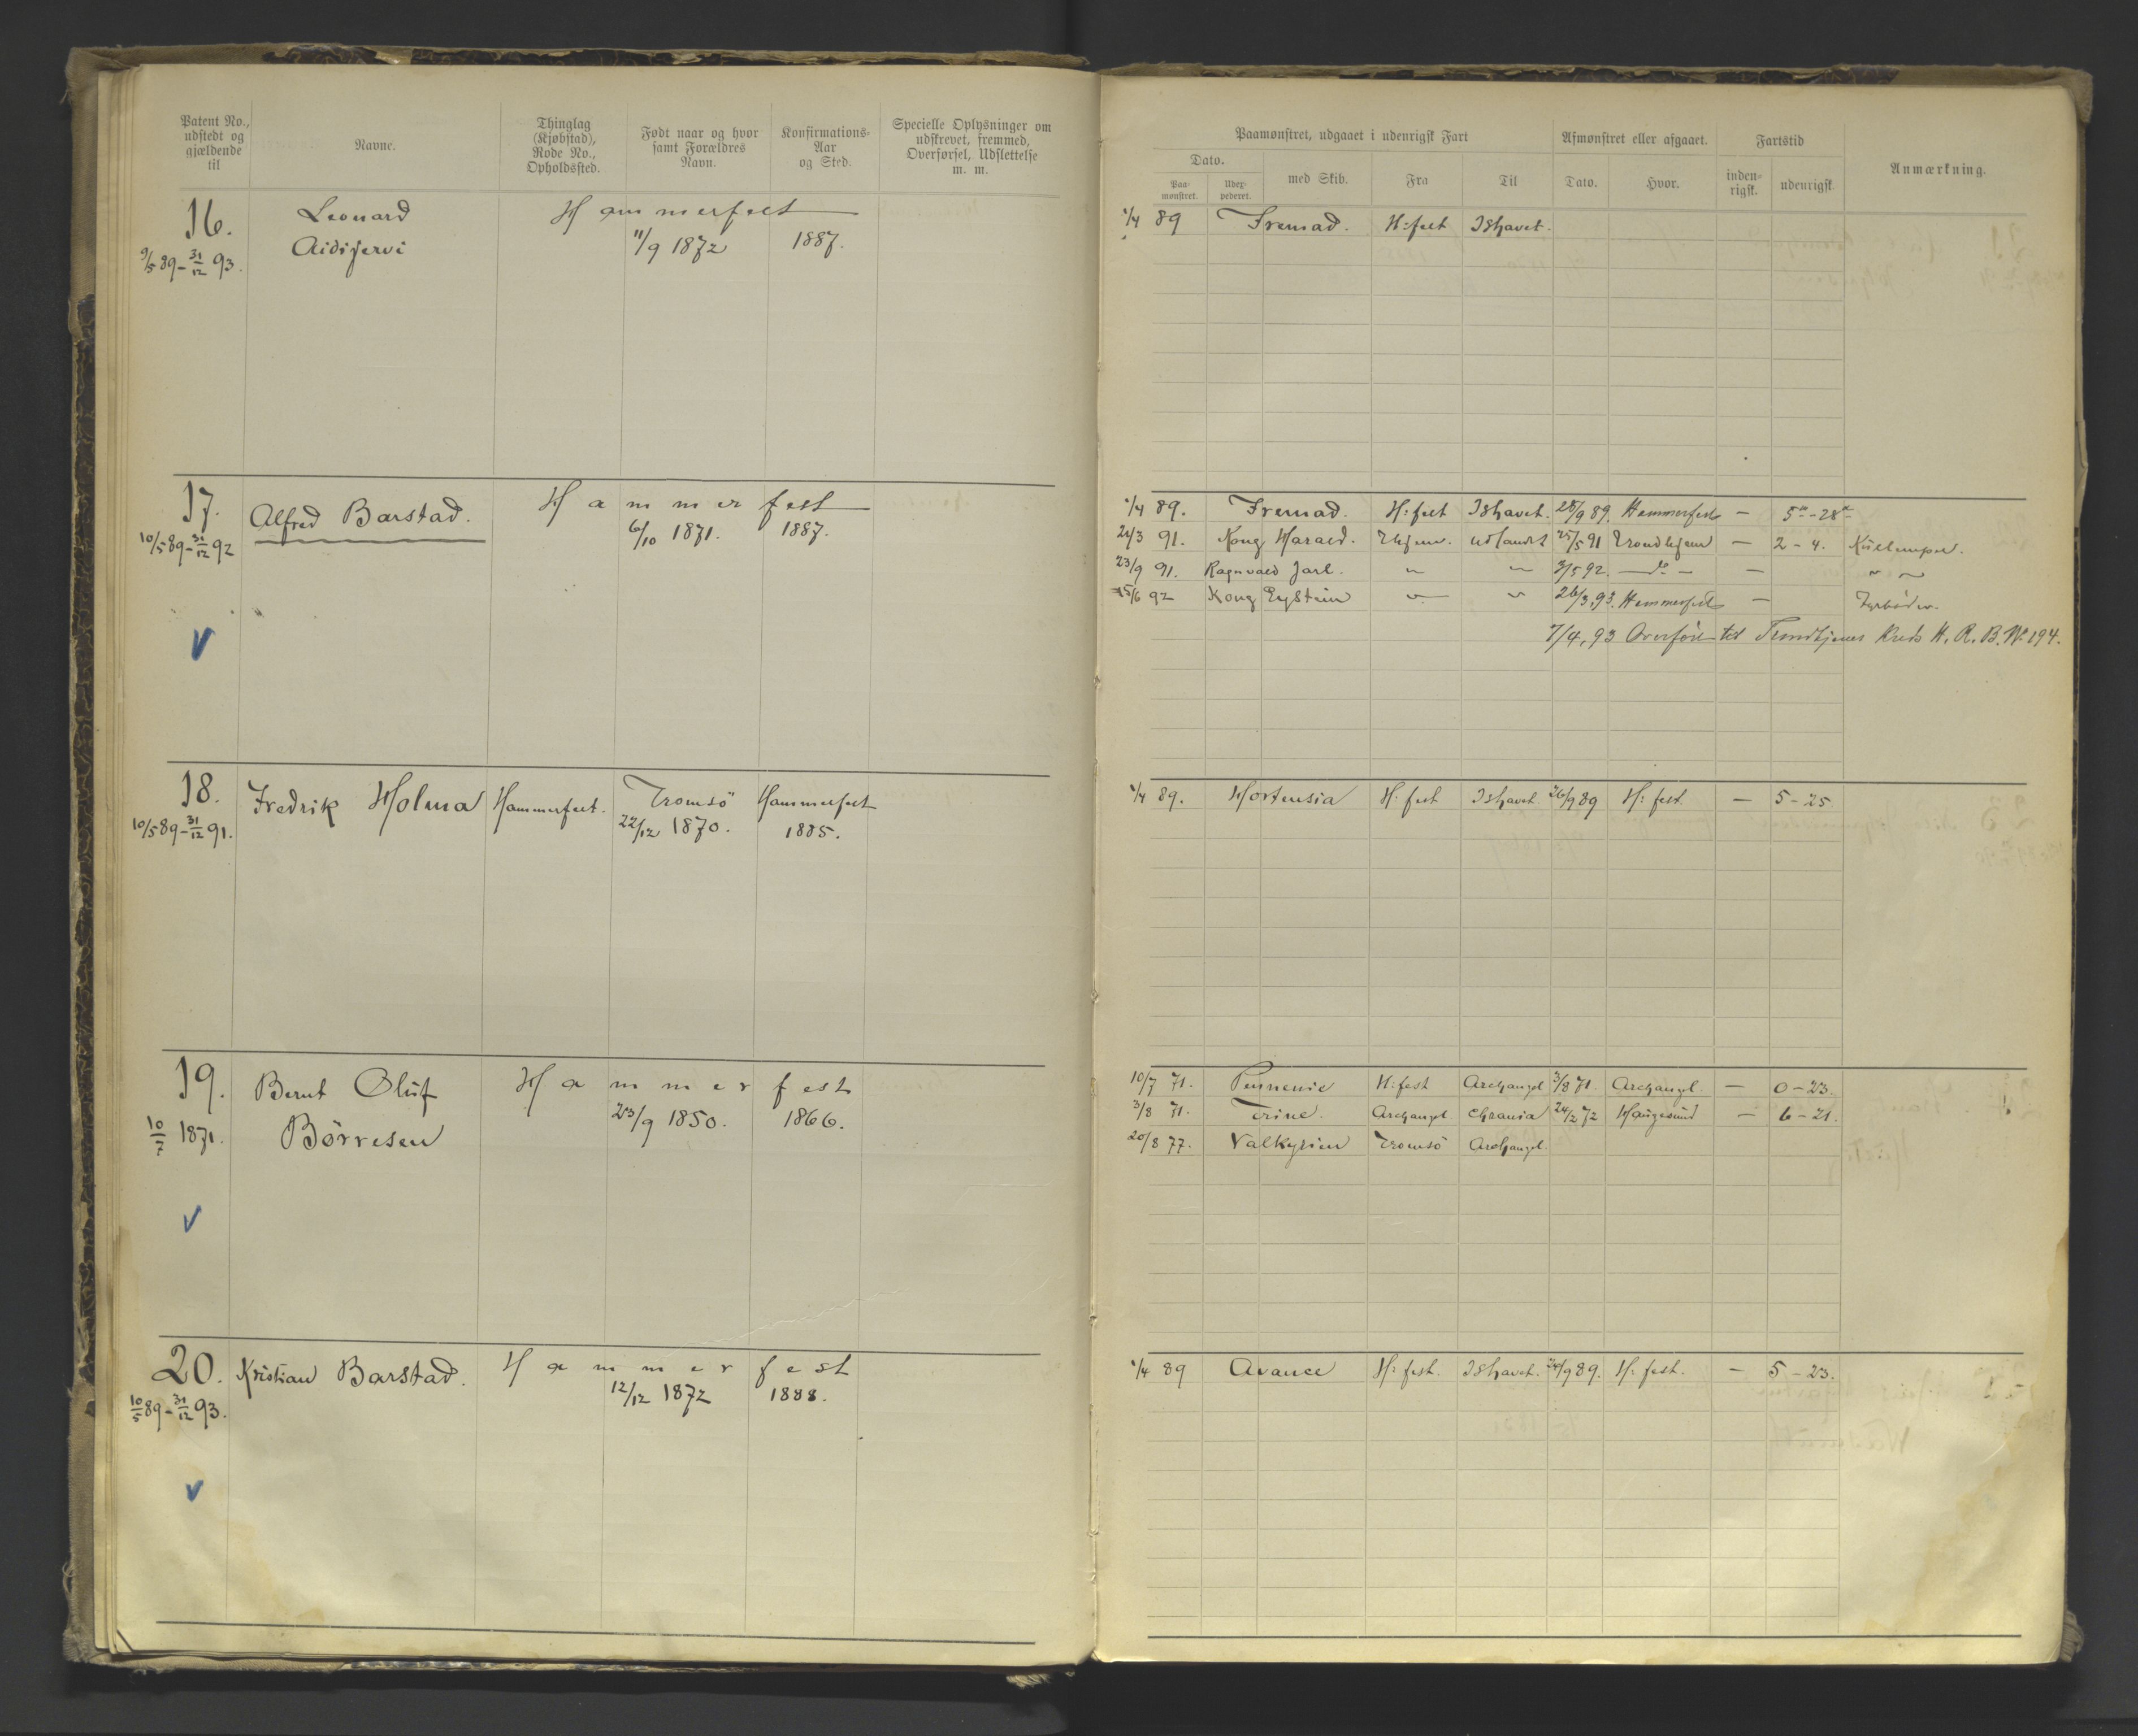 Patent No., udstedt og gjældende til
Navne.
Thinglag (Kjøbstad), Rode No., Opholdssted.
Født naar og hvor samt Forældres Navn.
Konfirmations-Aar og Sted.
Specielle Oplysninger om udskrevet, fremmed, Overførsel, Udslettelse m. m.
16. Leonard Hammerfest
9/5 89 - 31/12 93. Aidijervi 11/9 1872 1887.
17. Alfred Barstad. Hammerfest
10/5 89 - 31/12 92 6/10 1871. 1887.
18. Fredrik Holma Hammerfest. Tromsö Hammerfest
10/5 89 - 31/12 91. 22/12 1870. 1885.
19. Bernt Oluf Hammerfest
10/7 1871. Börresen 23/9 1850. 1866.
20. Kristian Barstad. Hammerfest
10/5 89 - 31/12 93. 12/12 1872 1888.
Paamønstret, udgaaet i udenrigsk Fart
Afmønstret eller afgaaet.
Fartstid
Anmærkning.
Dato.
Paa-mønstret.
Udex-pederet.
med Skib.
Fra
Til
Dato.
Hvor.
inden-rigsk.
udenrigsk
1/4 89 Fremad. H:fest Ishavet.
1/4 89. Fremad. H:fest Ishavet. 28/9 89. Hammerfest — 5 - 28
21/3 91. Kong Harald. Thjem. udlandet 25/5 91 Trondhjem — 2 - 4.
23/9 91. Ragnvald Jarl. " " 3/5 92. — do — — " "
15/6 92 Kong Eystein " " 26/3, 93. Hammerfest — Fyrböder.
7/4, 93 Overført til Trondhjems Kreds H. R. B. No. 194.
1/4 89. Hortensia H: fest Ishavet 26/9 89 H: fest. — 5 - 25.
10/7 71. H:fest Archangel 3/8 71. Archangel. — 0 - 23.
3/8 71. Trine. Archangel Chrania 24/2 72 Haugesund — 6 - 21.
20/8 77. Valkyrien Tromsö Archangel.
1/4 89 Avance H: fest. Ishavet. 24/9 89. H: fest. — 5 - 23.